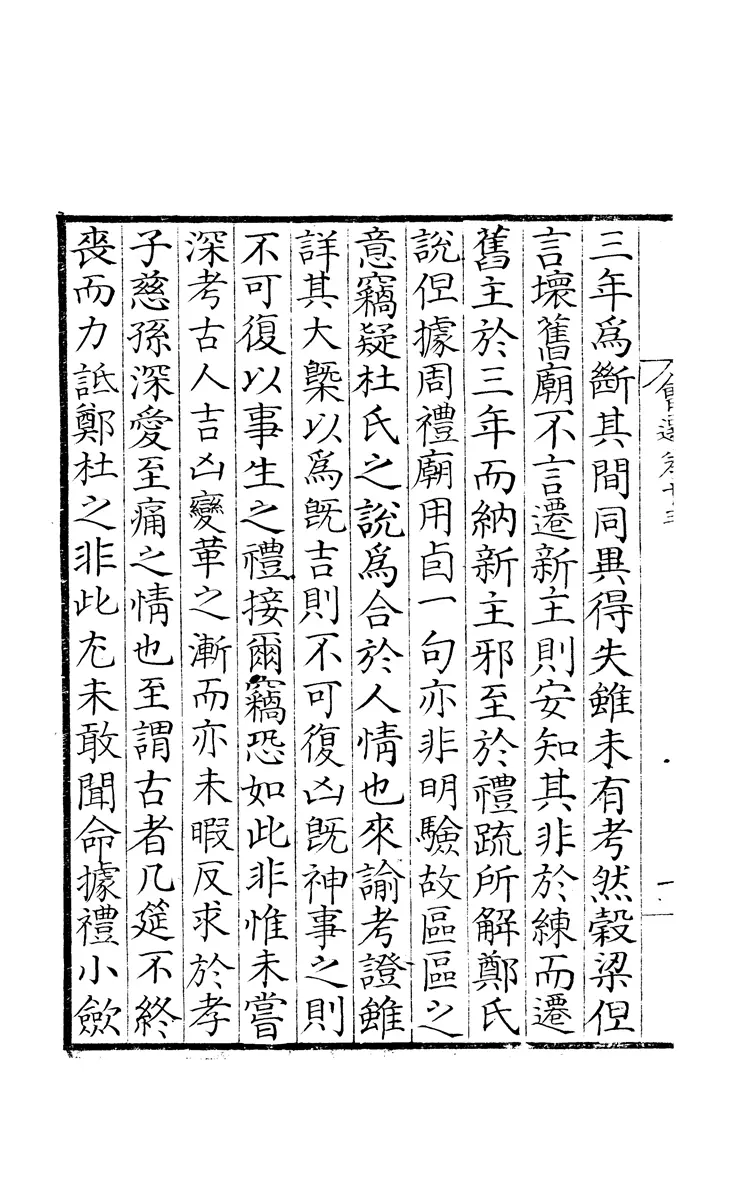 三年爲斷其間同異得失雖未有考然穀梁但
言壞舊廟不言遷新主則安知其非於練而遷
舊主於三年而納新主邪至於禮疏所解鄭氏
說但據周禮廟用卣一句亦非明驗故區區之
意竊疑杜氏之說爲合於人情也來諭考證雖
詳其大槩以爲旣吉則不可復凶旣神事之則
不可復以事生之禮接爾竊恐如此非惟未嘗
深考古人吉凶變革之漸而亦未暇反求於孝
子慈孫深愛至痛之情也至謂古者几筵不終
喪而力詆鄭杜之非此尤未敢聞命據禮小斂